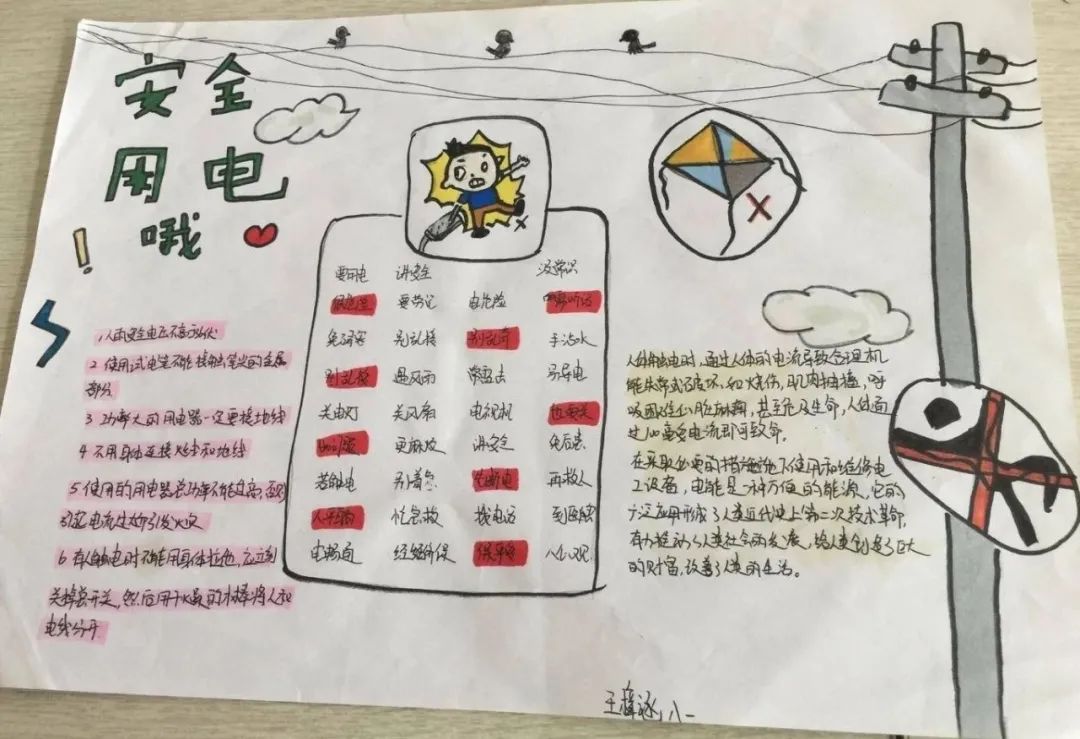 安全
用电
哦
!
1、人的安全电压不高于
2 使用试电笔不能接触笔尖的金属
部分
3 功率大的用电器一定要接地线
4 不用手连接火线和地线
5 使用的用电器总功率不能过高,否则
引起电流过大引发火灾
6 有人触电时不能用身体拉他,应立刻
关掉总开关,然后用干燥的木棒将人和
电线分开
要用电 讲安全 没常识
要劳记 电危险
别乱接 别乱弄 手沾水
别乱接 遇风雨 易导电
关电灯 关风扇 电视机 也要关
更麻烦 讲安全
若触电 别着急 先断电 再救人
忙急救 找电话 到医院
电畅通 保平安
人体触电时,通过人体的电流导致心理机
能失常或破坏,如烧伤,肌肉抽搐,呼
吸困难,心脏麻痹,甚至危及生命,人体通
过100毫安电流即可致命。
在采取必要的措施施下使用和维修电
工设备,电能是一种方便的能源,它的
广泛应用形成了人类近代史上第二次技术革命,
有力推动了人类社会的发展,给人类创造了巨大
的财富,改善了人类的生活。
八一